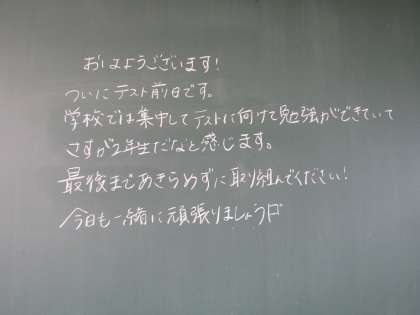 おはようございます!
ついにテスト前日です。
学校では集中してテストに向けて勉強ができていて
さすが2年生だなと感じます。
最後まであきらめずに取り組んでください!
今日も一緒に頑張りましょう